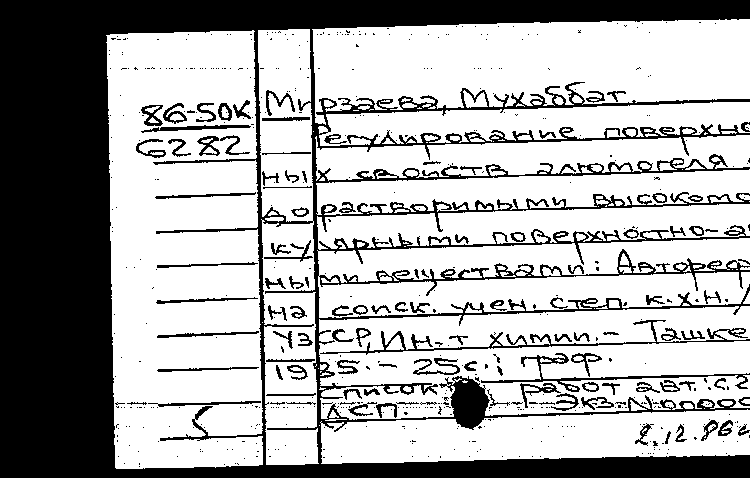 86-50К Мирзаева, Мухаббат.
6282 Регулирование поверхно
ных свойств алюмогеля
дорастворимыми высокомо
кулярными поверхностно-а
ными веществами: Автореф
на соиск. учен. степ. к.х.н. /
УзССР, Ин-т химии. - Ташке
1985. - 25с.: граф.
Список работ авт.: с. 2
5 ДСП. Экз. N
2.12.86